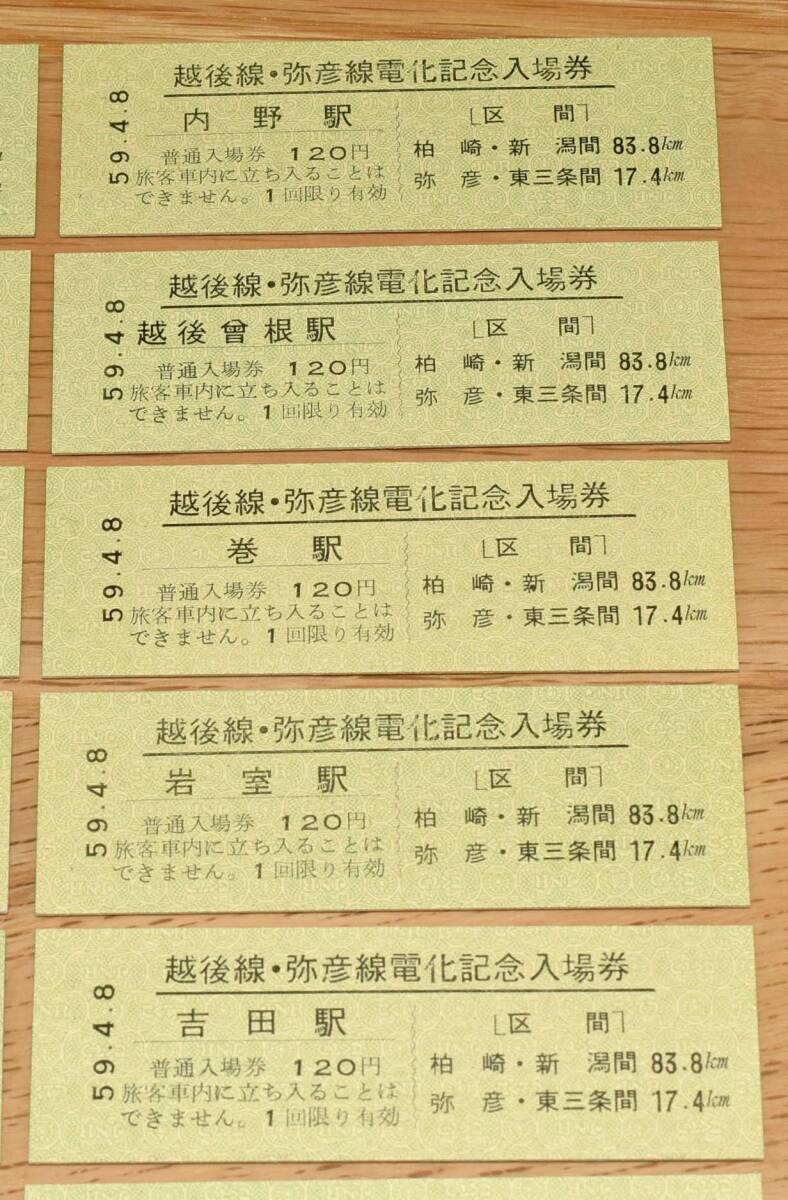 越後線・弥彦線電化記念入場券
59.4.8
内野駅
普通入場券 120円
旅客車内に立ち入ることは
できません。1回限り有効
[区 間]
柏 崎・新 潟間 83.8km
弥 彦・東三条間 17.4km
越後線・弥彦線電化記念入場券
59.4.8
越後曽根駅
普通入場券 120円
旅客車内に立ち入ることは
できません。1回限り有効
[区 間]
柏 崎・新 潟間 83.8km
弥 彦・東三条間 17.4km
越後線・弥彦線電化記念入場券
59.4.8
巻駅
普通入場券 120円
旅客車内に立ち入ることは
できません。1回限り有効
[区 間]
柏 崎・新 潟間 83.8km
弥 彦・東三条間 17.4km
越後線・弥彦線電化記念入場券
59.4.8
岩室駅
普通入場券 120円
旅客車内に立ち入ることは
できません。1回限り有効
[区 間]
柏 崎・新 潟間 83.8km
弥 彦・東三条間 17.4km
越後線・弥彦線電化記念入場券
59.4.8
吉田駅
普通入場券 120円
旅客車内に立ち入ることは
できません。1回限り有効
[区 間]
柏 崎・新 潟間 83.8km
弥 彦・東三条間 17.4km